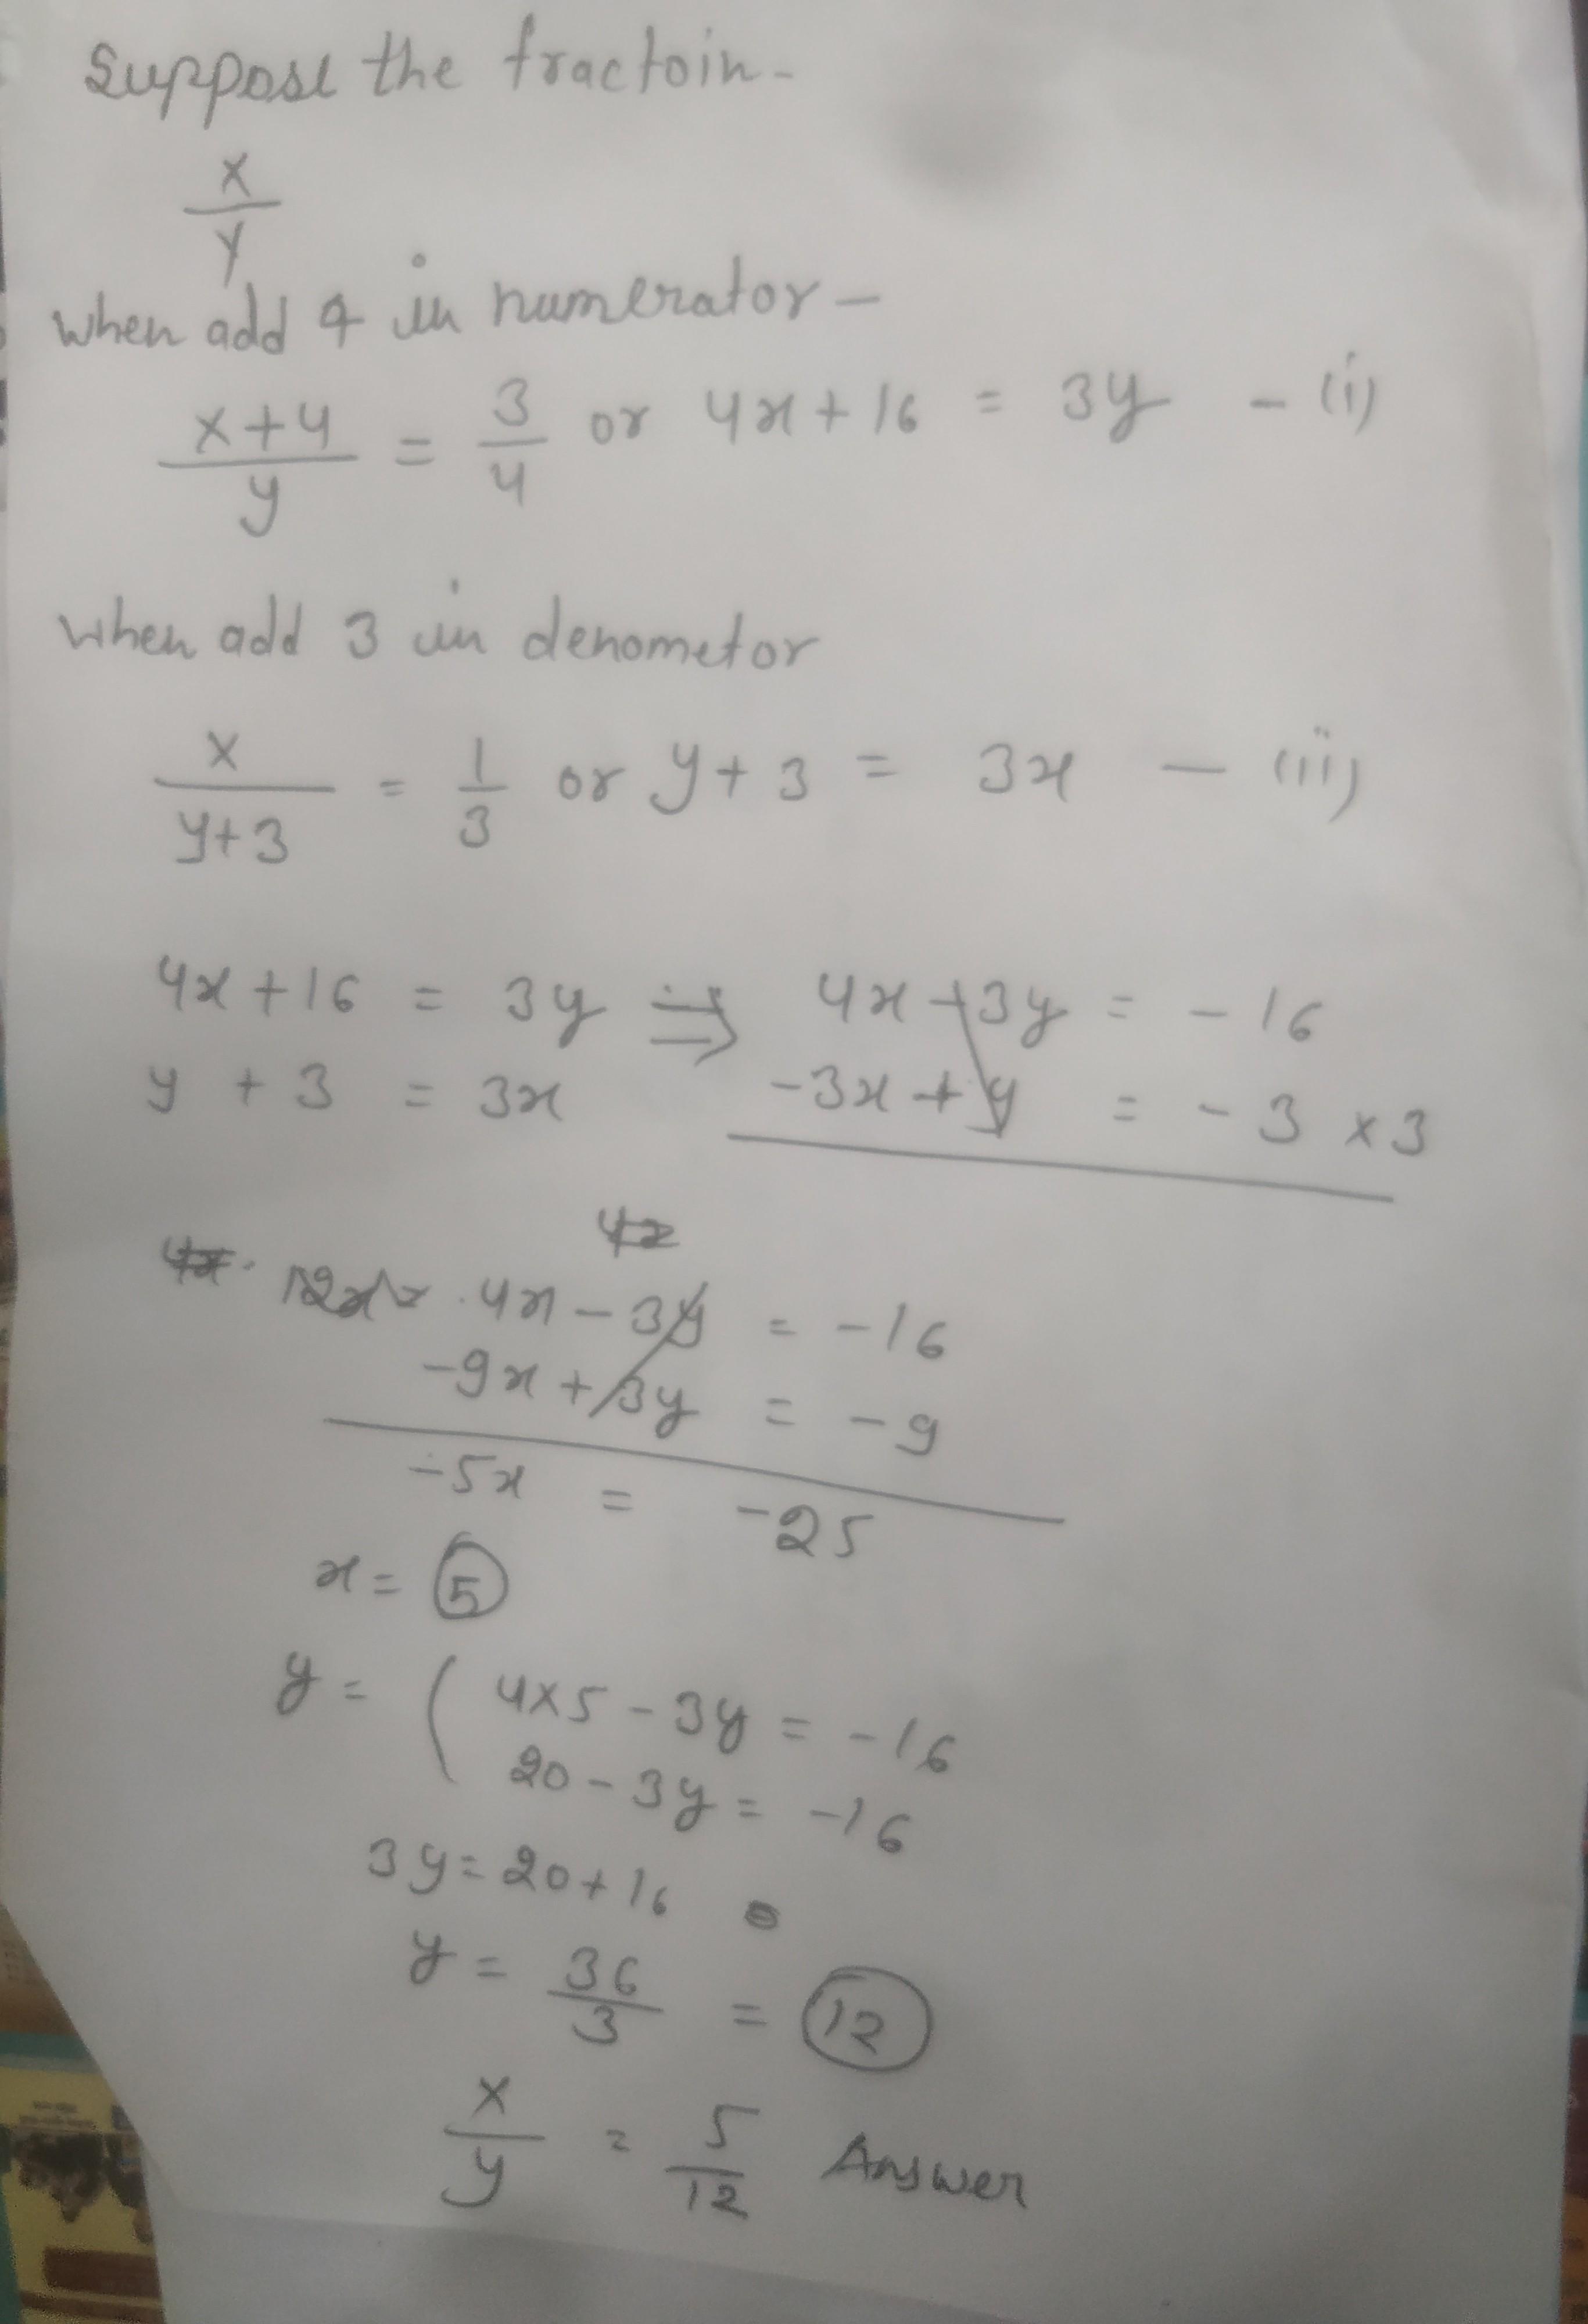 Suppose the fractoin -
x/y
when add 4 in numerator -
x+4/y = 3/4 or 4x+16 = 3y - (i)
when add 3 in denometor
x/y+3 = 1/3 or y+3 = 3x - (ii)
4x+16 = 3y ⇒ 4x-3y = -16
y + 3 = 3x -3x+y = -3 ×3
4x - 3y = -16
-9x + 3y = -9
-5x = -25
x = 5
y = ( 4×5 - 3y = -16
20 - 3y = -16
3y = 20+16
y = 36/3 = 12
x/y = 5/12 Answer